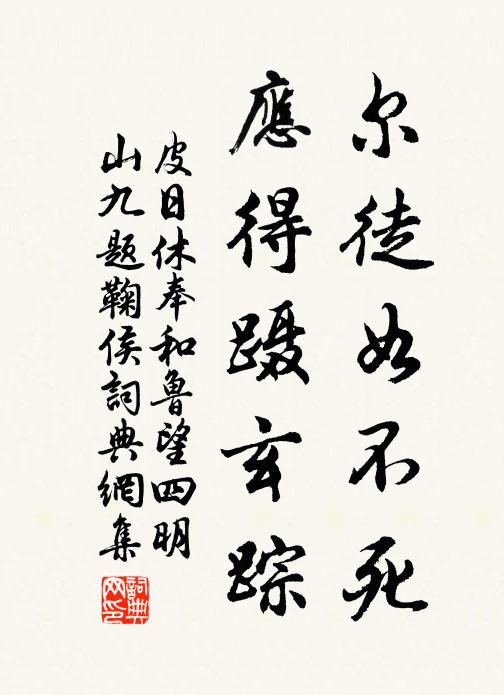 尔徒如不死
應得蹑玄踪
皮日休奉和魯望四明
山九题鞠侯詞典網集
詞典网印